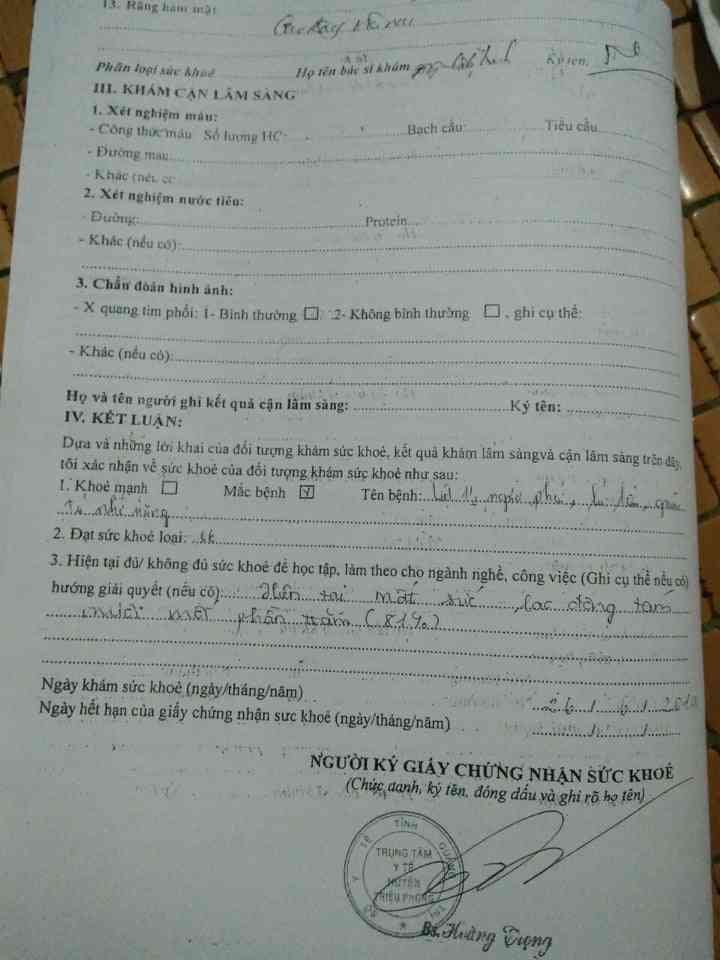 13. Răng hàm mặt
Phân loại sức khoẻ Họ tên bác sĩ khám Ký tên,
III. KHÁM CẬN LÂM SÀNG
1. Xét nghiệm máu:
- Công thức máu Số lượng HC: Bạch cầu: Tiểu cầu
- Đường máu
- Khác (nếu có
2. Xét nghiệm nước tiểu:
- Đường: Protein
- Khác (nếu có):
3. Chẩn đoán hình ảnh:
- X quang tim phổi: 1- Bình thường ☐ 2- Không bình thường ☐ , ghi cụ thể:
- Khác (nếu có):
Họ và tên người ghi kết quả cận lâm sàng: Ký tên:
IV. KẾT LUẬN:
Dựa và những lời khai của đối tượng khám sức khoẻ, kết quả khám lâm sàngvà cận lâm sàng trên đây,
tôi xác nhận về sức khoẻ của đối tượng khám sức khoẻ như sau:
1. Khoẻ mạnh ☐ Mắc bệnh ☑ Tên bệnh: Liệt 1/2 người phải,
2. Đạt sức khoẻ loại: kk
3. Hiện tại đủ/ không đủ sức khoẻ để học tập, làm theo cho ngành nghề, công việc (Ghi cụ thể nếu có)
hướng giải quyết (nếu có): Hiện tại mất sức lao động tám
mươi một phần trăm (81%)
Ngày khám sức khoẻ (ngày/tháng/năm) 26 / 6 /
Ngày hết hạn của giấy chứng nhận sưc khoẻ (ngày/tháng/năm) / /
NGƯỜI KÝ GIẤY CHỨNG NHẬN SỨC KHOẺ
(Chức danh, ký tên, đóng dấu và ghi rõ họ tên)
SỞ Y TẾ TỈNH QUẢNG TRỊ
TRUNG TÂM
Y TẾ
HUYỆN
TRIỆU PHONG
Bs. Hoàng Trọng